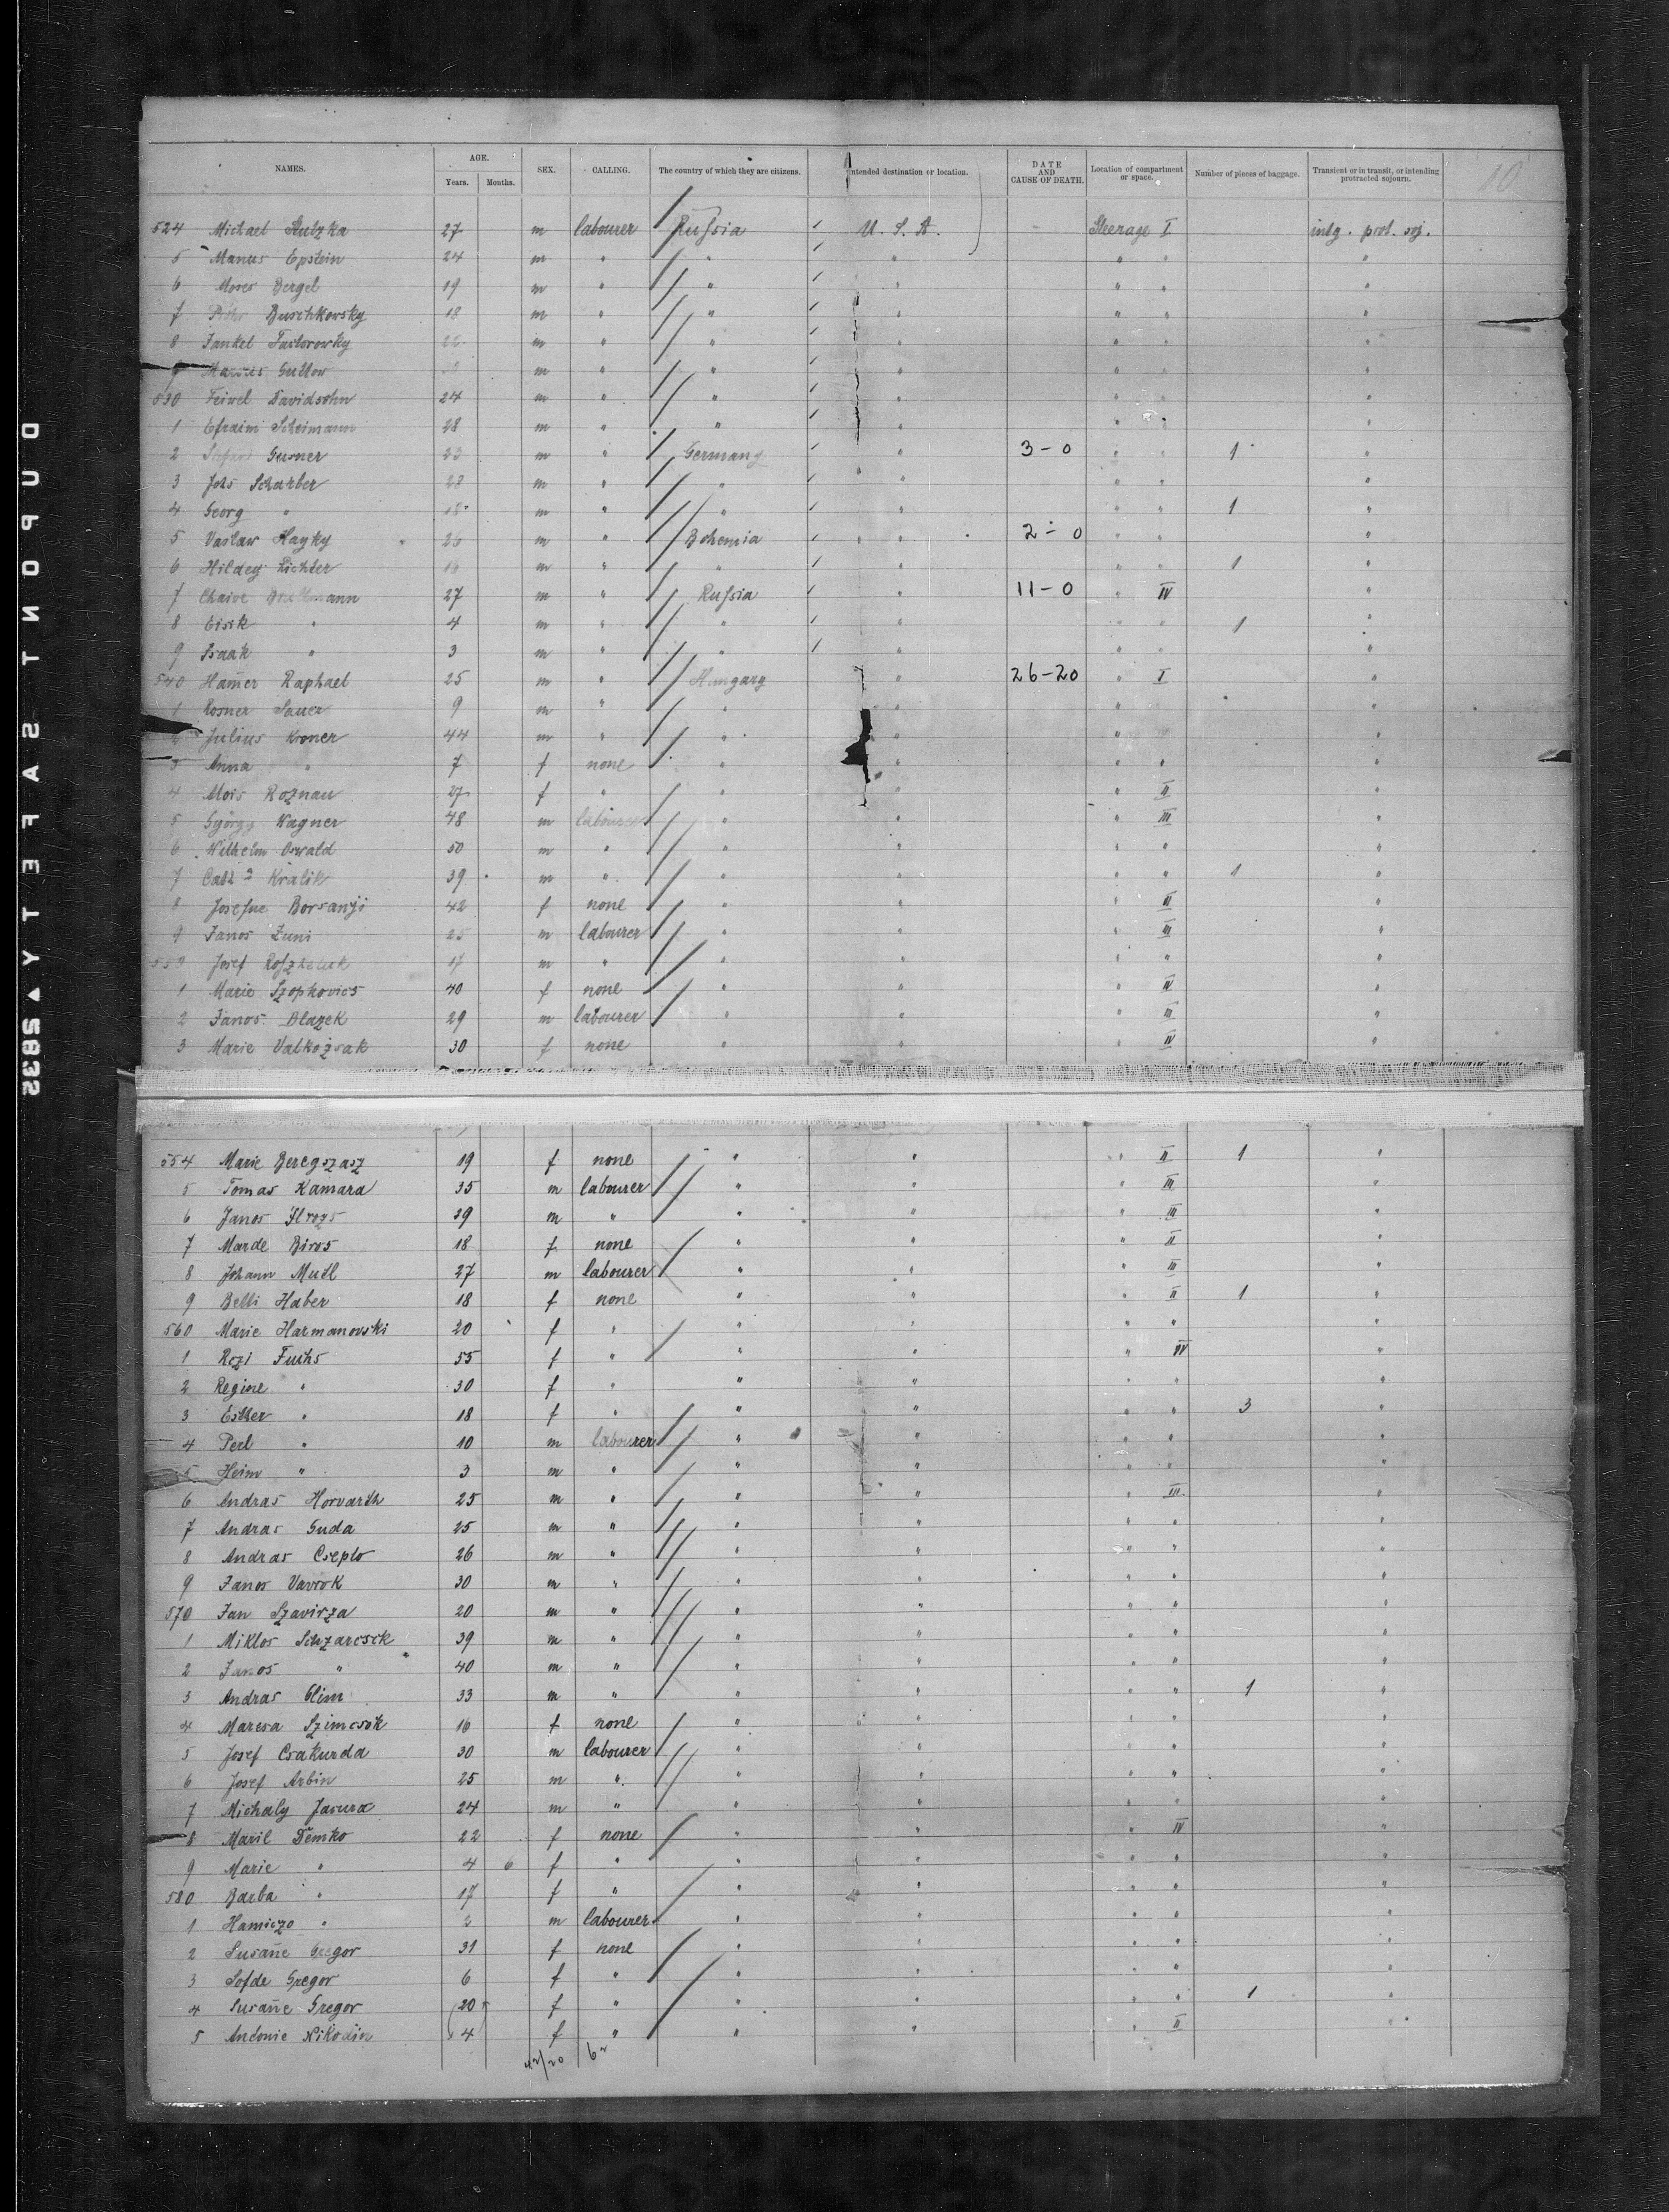 DUPONT SAFETY ▲ 5832
10
NAMES. AGE. Years. Months. SEX. CALLING. The country of which they are citizens. Intended destination or location. DATE AND CAUSE OF DEATH. Location of compartment or space. Number of pieces of baggage. Transient or in transit, or intending protracted sojourn.
524 Michael 27 m labourer Russia U. S. A. Steerage I intg. prot. soj.
5 Manus Epstein 24 m " " " " " "
6 Moses Bergel 19 m " " " " " "
7 Buschkowsky 18 m " " " " " "
8 Jankel m " " " " " "
9 m " " " " " "
530 Feiwel Davidsohn 24 m " " " " " "
1 Efraim Scheimann 28 m " " " " " "
2 Gusner 23 m " Germany " 3-0 " " 1 "
3 Johs Scharber 28 m " " " " " "
4 Georg " 18 m " " " " " 1 "
5 Vaslaw Hayky 26 m " Bohemia " 2-0 " " "
6 Richter m " " " " " 1 "
7 27 m " Russia " 11-0 " IV "
8 Eisik " 4 m " " " " " 1 "
9 Isaak " 3 m " " " " " "
540 Hamer Raphael 25 m " Hungary " 26-20 " I "
1 Rosner Sauer 9 m " " " " "
2 Julius Kroner 44 m " " " " "
3 Anna " 7 f none " " " " "
4 Mois Roznau 27 f " " " " II "
5 György Wagner 48 m labourer " " " III "
6 Wilhelm Oswald 50 m " " " " " "
7 Kralik 39 m " " " " " 1 "
8 Josefne Borsanji 42 f none " " " II "
9 Janos Zuni 25 m labourer " " " III "
550 Josef 17 m " " " " " "
1 Marie Szopkovics 40 f none " " " IV "
2 Janos Blazek 29 m labourer " " " III "
3 Marie Valkozsak 30 f none " " " IV "
554 Marie Beregszasz 19 f none " " " II 1 "
5 Tomas Kamara 35 m labourer " " " III "
6 Janos 39 m " " " " III "
7 Marde Biros 18 f none " " " II "
8 Johann Mudl 27 m labourer " " " III "
9 Betti Haber 18 f none " " " II 1 "
560 Marie Harmanovski 20 f " " " " " "
1 Rezi Fuchs 55 f " " " " IV "
2 Regine " 30 f " " " " " "
3 Esther " 18 f " " " " " 3 "
4 Perl " 10 m labourer " " " " "
5 Heim " 3 m " " " " " "
6 Andras Horvarth 25 m " " " " III "
7 Andras Guda 25 m " " " " " "
8 Andras Cseplo 26 m " " " " " "
9 Janos Vavrok 30 m " " " " " "
570 Jan Szavirza 20 m " " " " " "
1 Miklos Schzarcsck 39 m " " " " " "
2 Janos " 40 m " " " " " "
3 Andras Glim 33 m " " " " " 1 "
4 Maresa Szimcsok 16 f none " " " " "
5 Josef Csakurda 30 m labourer " " " " "
6 Josef Arbin 25 m " " " " " "
7 Michaly Jasura 24 m " " " " " "
8 Maril Demko 22 f none " " " IV "
9 Marie " 4 6 f " " " " " "
580 Barba " 17 f " " " " " "
1 Hamiczo " 2 m labourer " " " " "
2 Susañe Gregor 31 f none " " " " "
3 Sofde Gregor 6 f " " " " " "
4 Susañe Gregor 20 f " " " " " 1 "
5 Antonie Nikodin 4 f " " " " II "
42/20 62